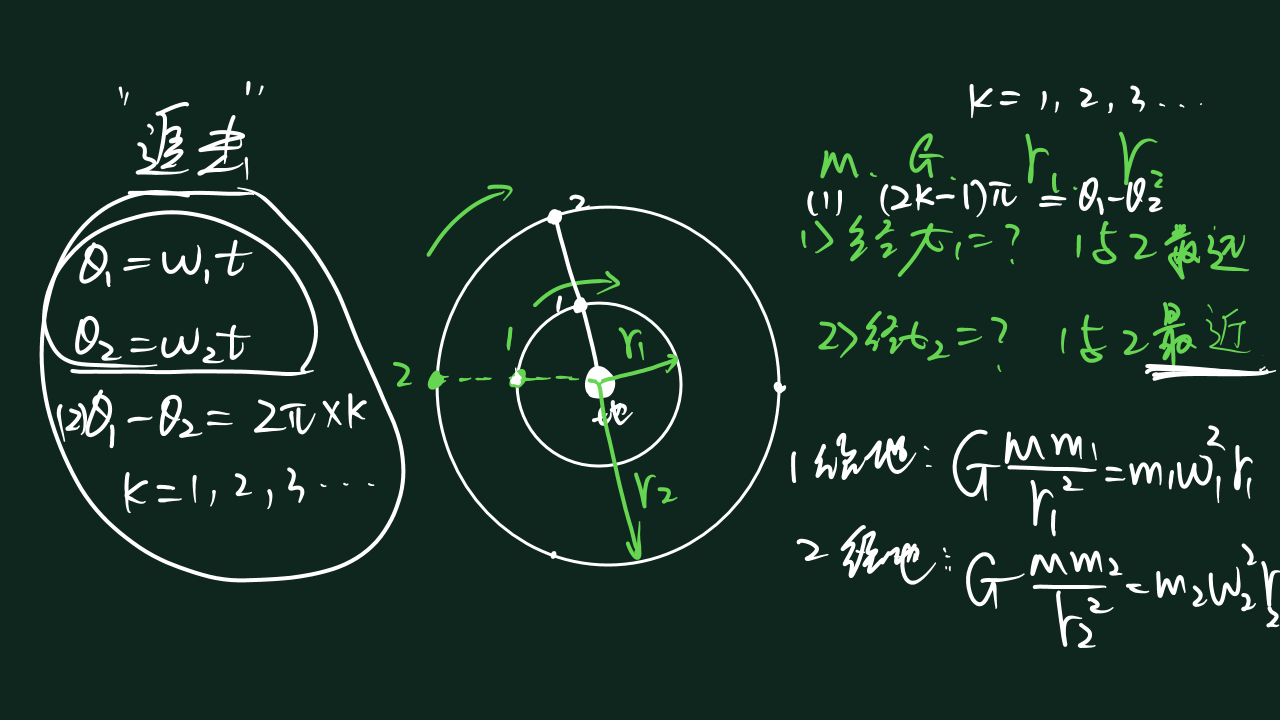 "追击"
θ₁=ω₁t
θ₂=ω₂t
(2)θ₁-θ₂=2π×k
k=1,2,3…
2
1
1
2
r₁
地
r₂
k=1,2,3…
M. G. r₁. r₂
(1) (2k-1)π=θ₁-θ₂
1>经t₁=? 1与2最远
2>经t₂=? 1与2最近
1绕地:G Mm₁/r₁²=m₁ω₁²r₁
2绕地:G Mm₂/r₂²=m₂ω₂²r₂